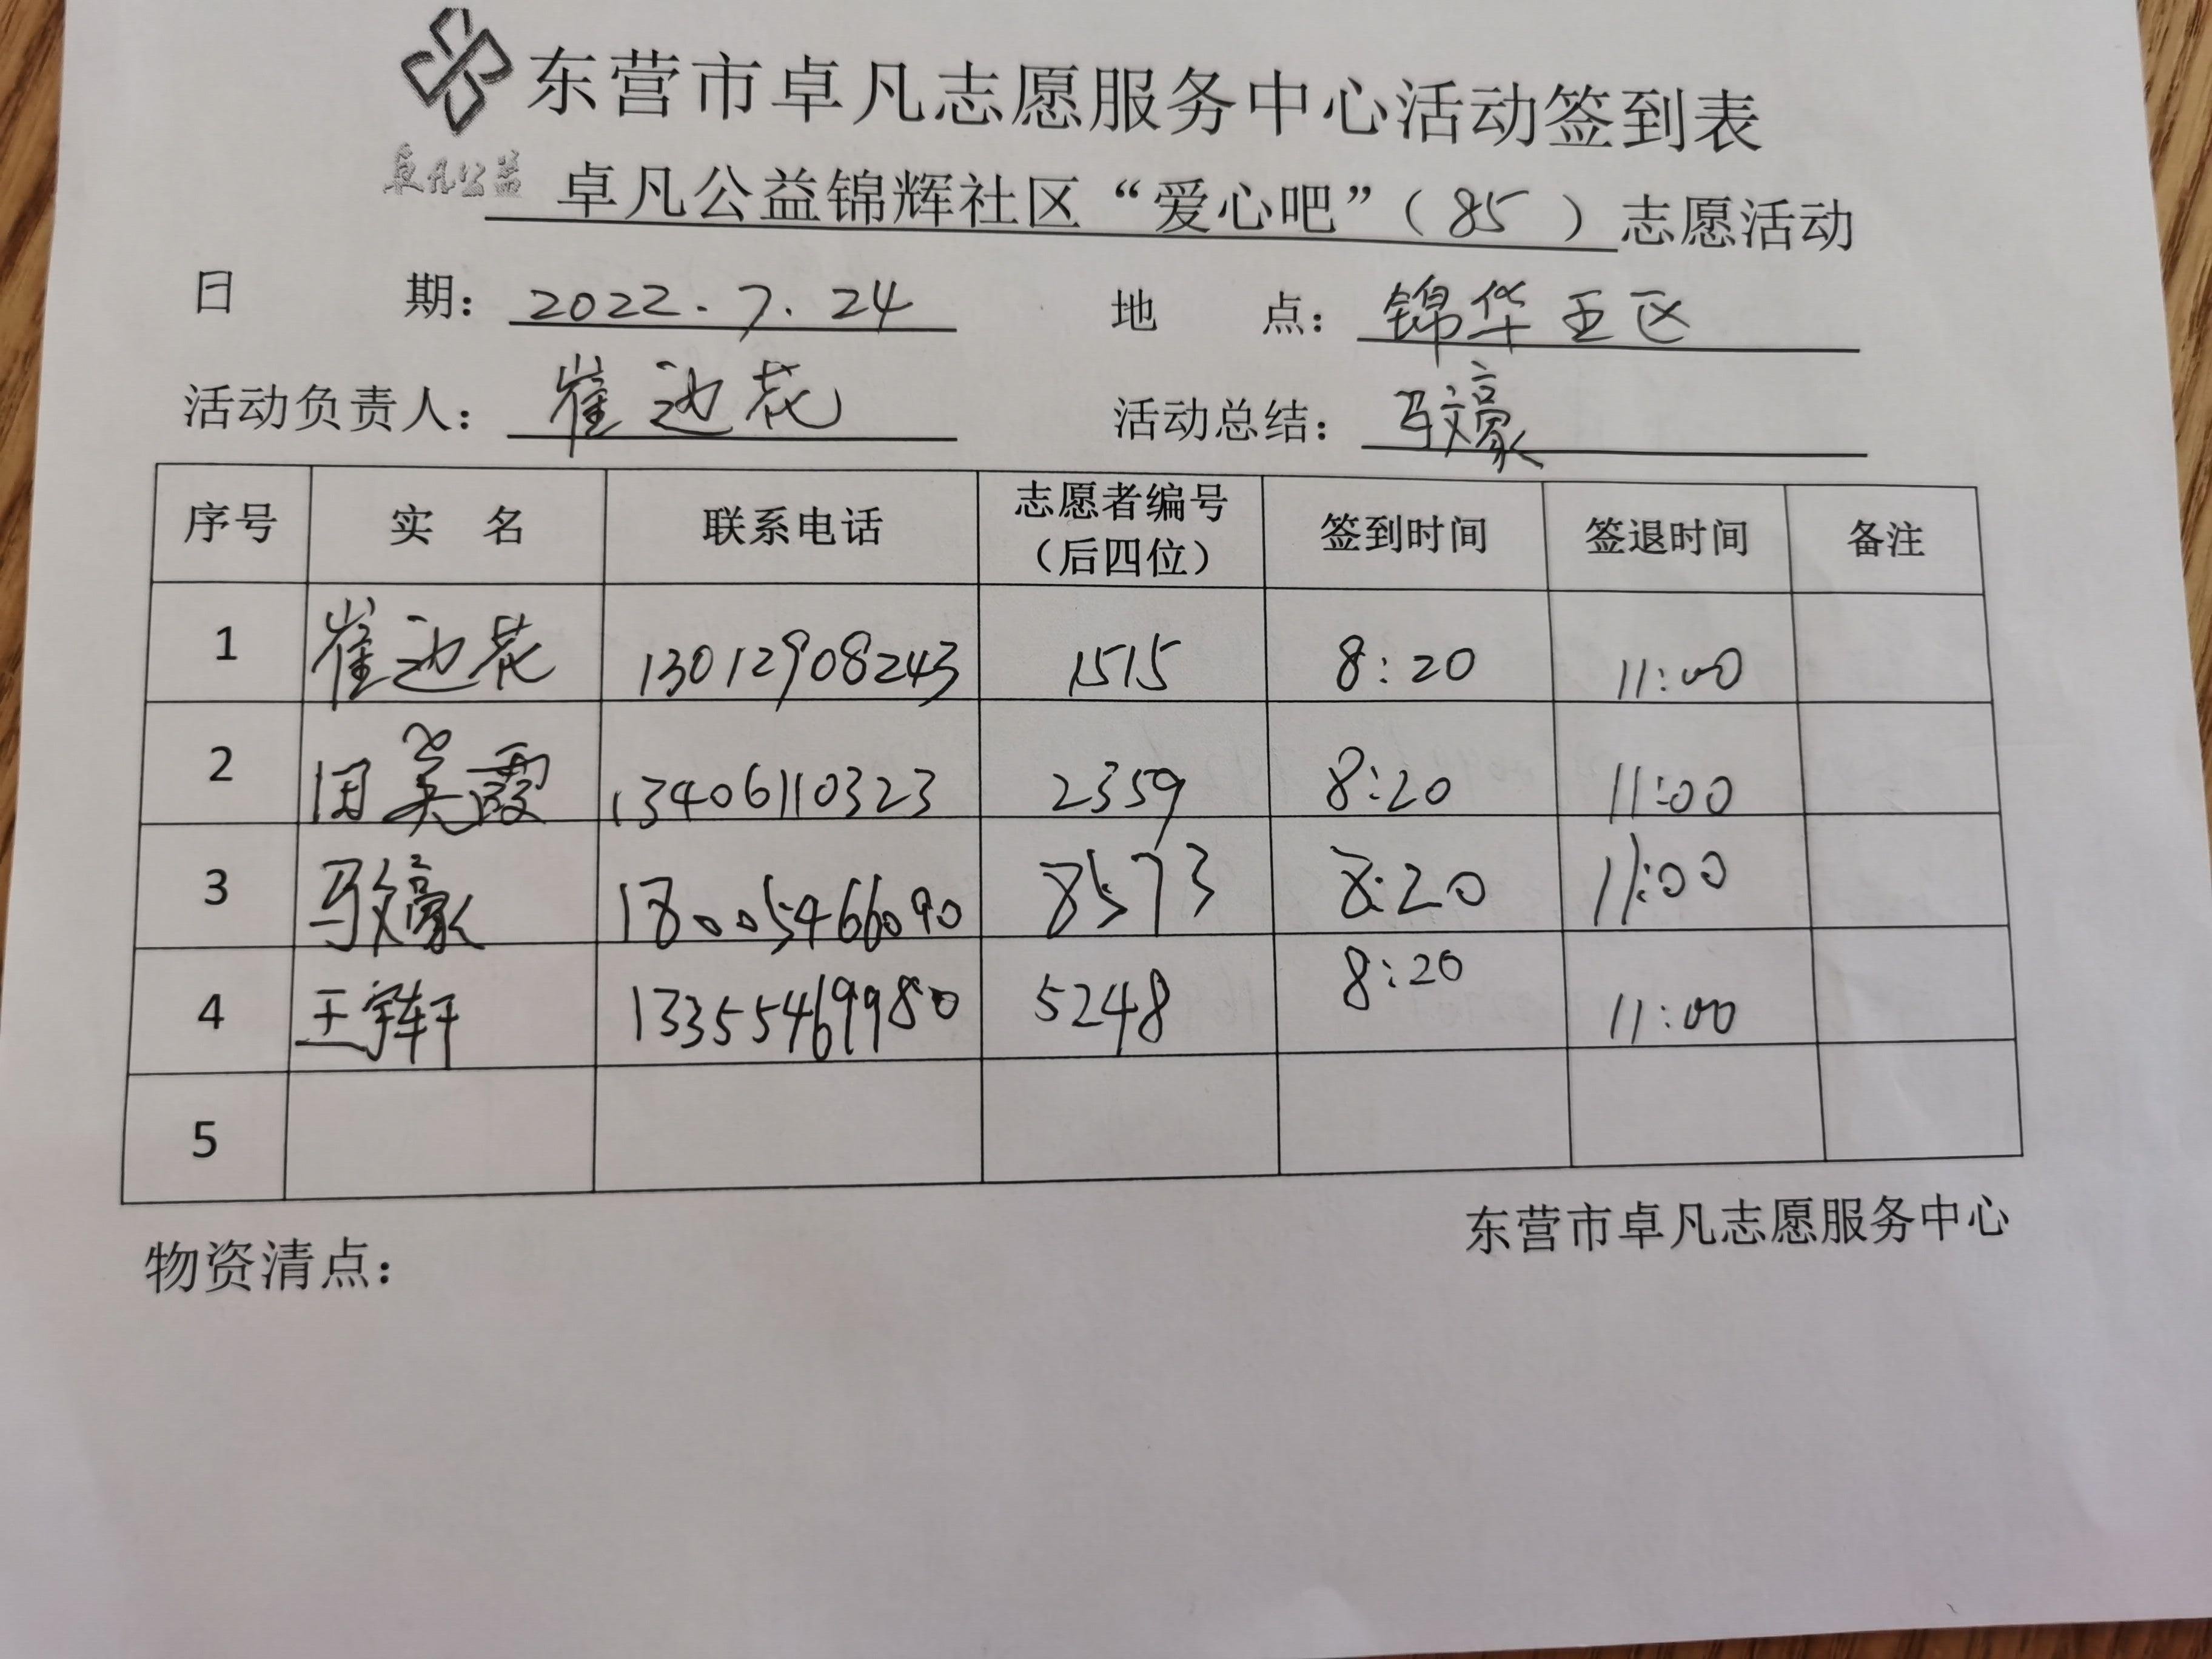 东营市卓凡志愿服务中心活动签到表
卓凡公益
卓凡公益锦辉社区“爱心吧”（85）志愿活动
日 期：2022.7.24 地 点：锦华五区
活动负责人：崔迎花 活动总结：马文豪
序号 实 名 联系电话 志愿者编号（后四位） 签到时间 签退时间 备注
1 崔迎花 13012908243 1515 8:20 11:00
2 田英霞 13406110323 2359 8:20 11:00
3 马文豪 18005466090 8573 8:20 11:00
4 王宇轩 13355469980 5248 8:20 11:00
5
东营市卓凡志愿服务中心
物资清点：